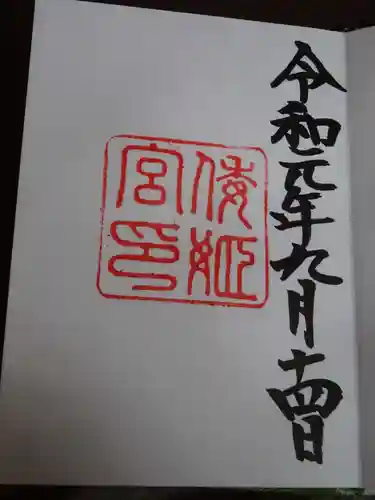 令和元年九月十四日
倭姫
宮印